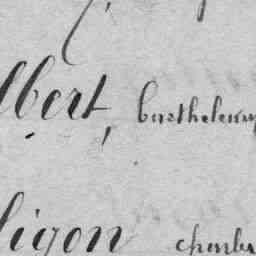 lbert, barthelemy
ligon charles